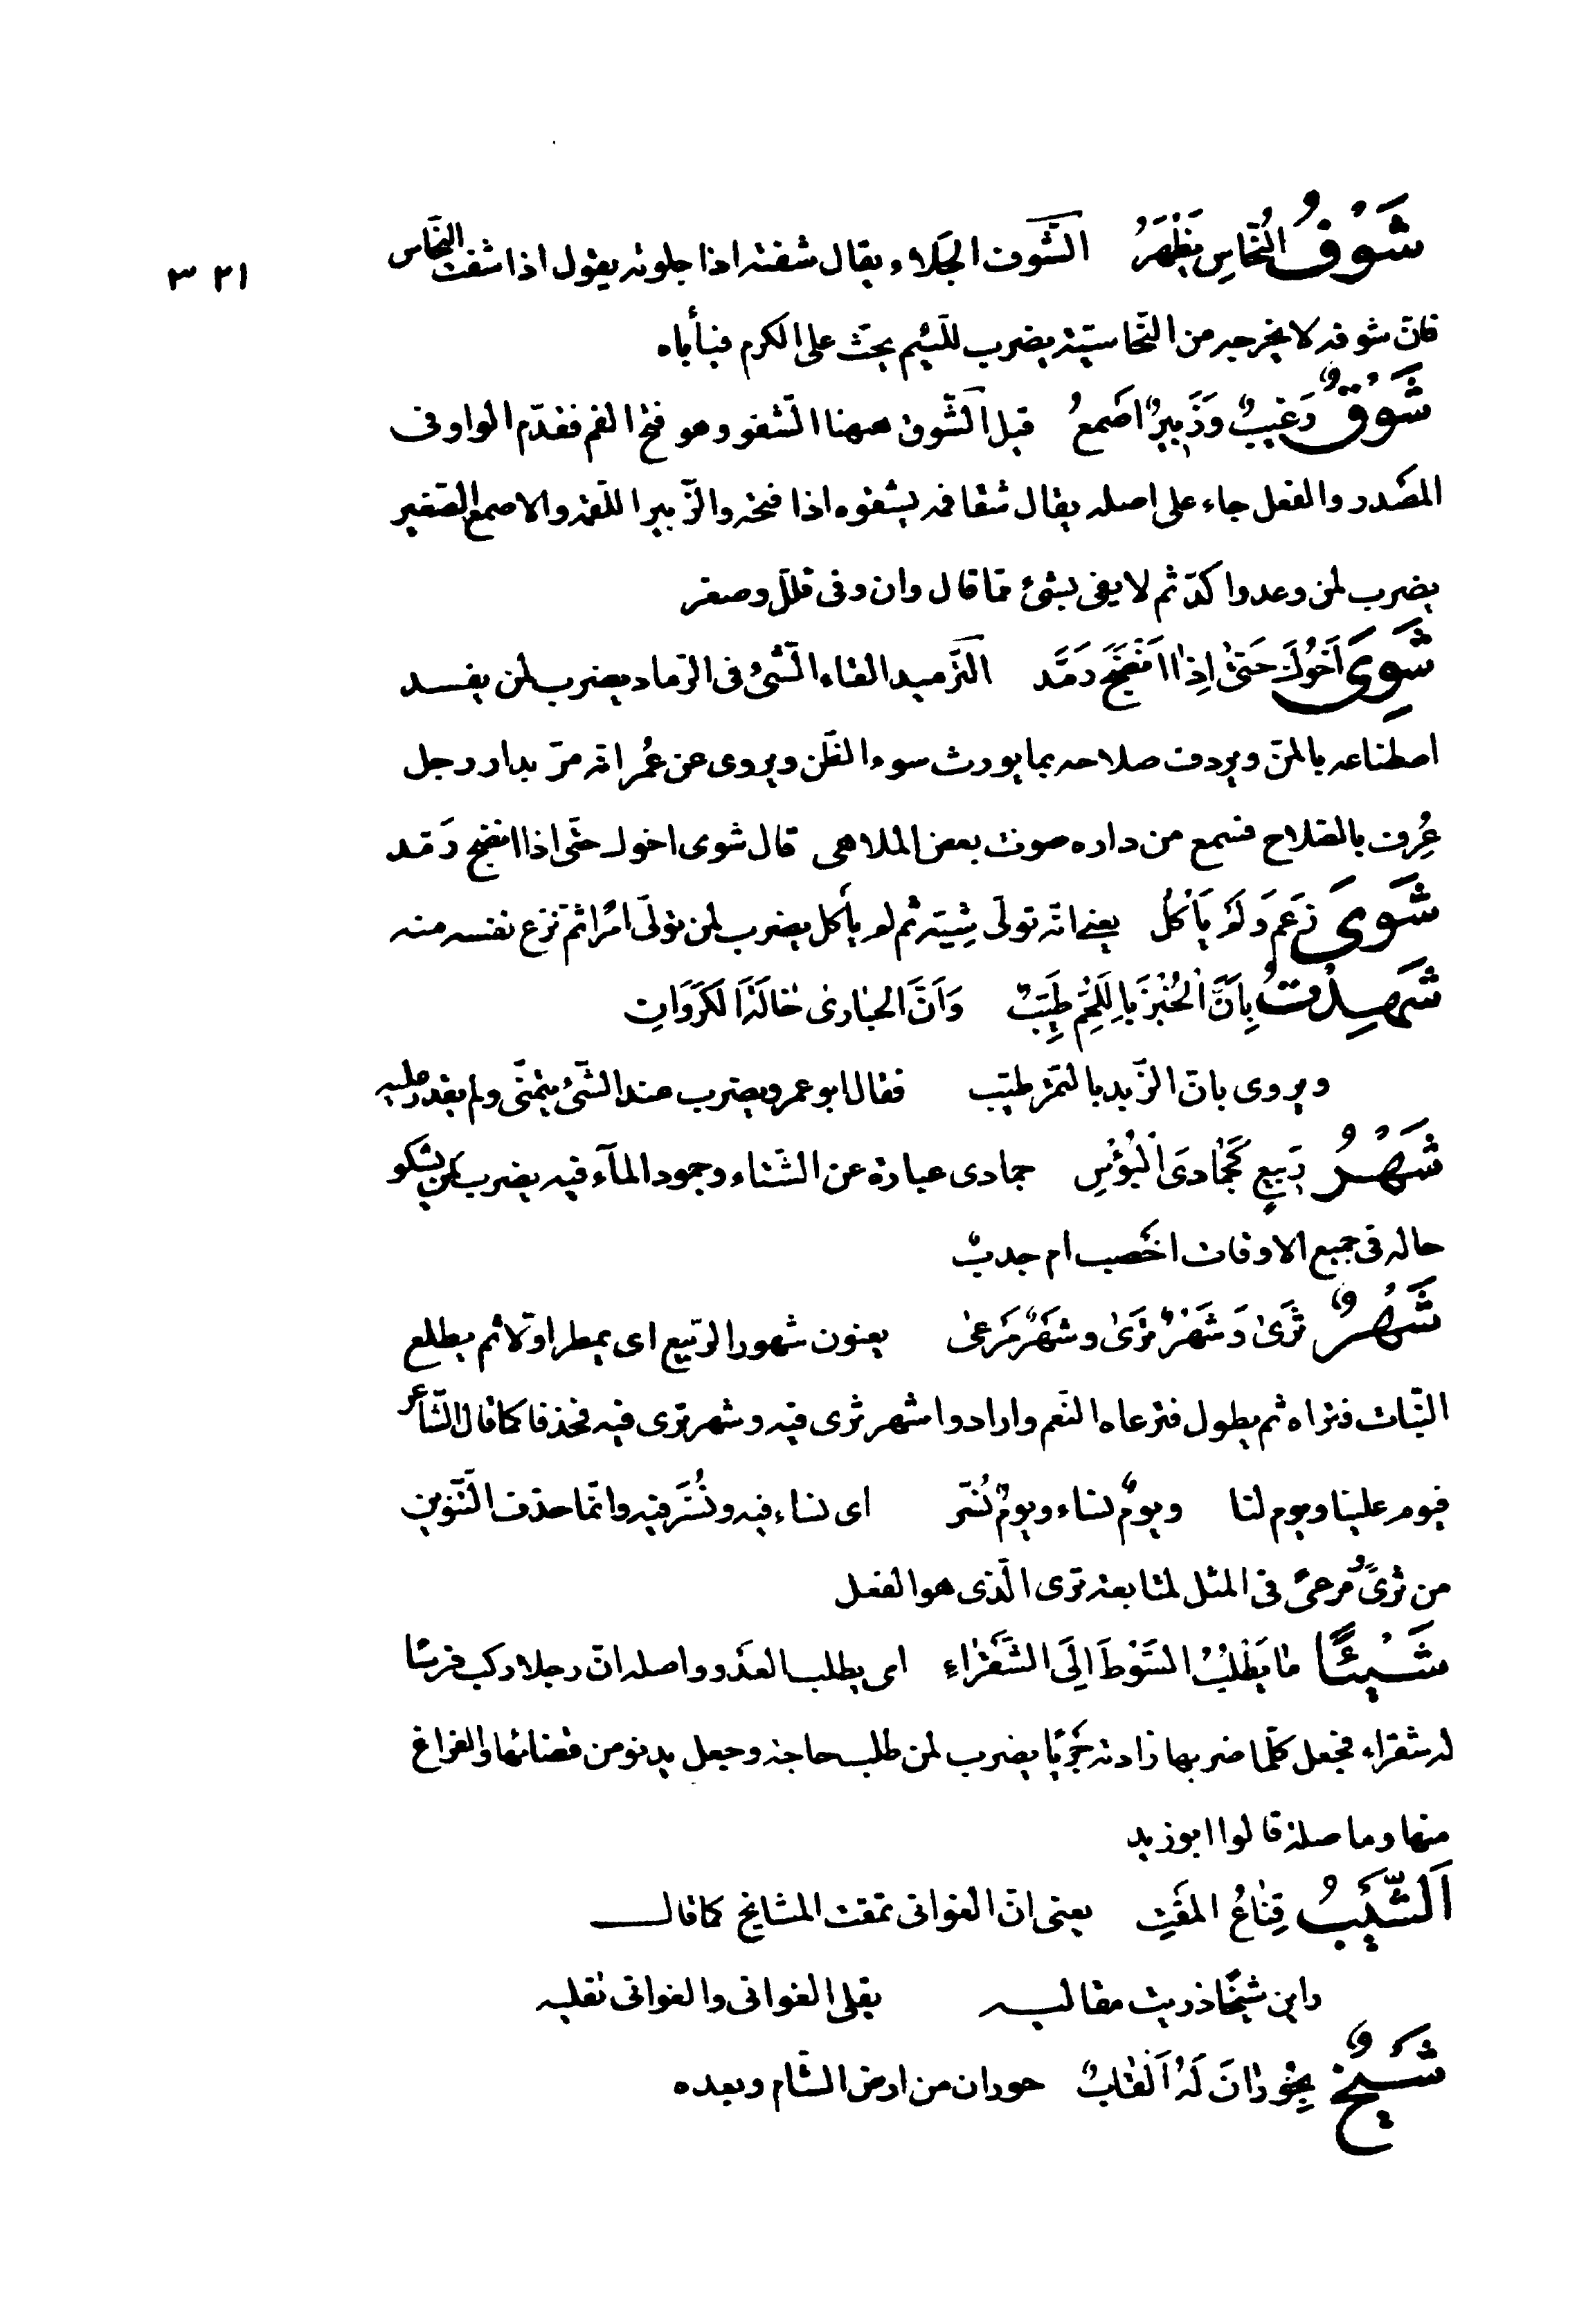 شَوْفُ النُّحَاسِ يُظْهِرُ الشّوف الجَلاء يقال شفته اذا جلوته يقول اذا شفت النّحاس
٣٢١
فانّ شوفه لا يخرجه من النّحاسيّة يضرب للّئيم يحثّ على الكرم فيأباه
شَوْقٌ رَغِيبٌ وَزُبَيْرٌ اَصْمَعُ قيل الشّوق ههنا الشّقو وهو فتح الفم فقدّم الواو فى
المصَدر والفعل جاء على اصله يقال شقا فمه يشقوه اذا فتحه والزّبير اللّقمة والاصمع الصّغير
يضرب لمن وعد واكدّ ثم لا يفى بشئ ممّا قال وان وفى قلّل وصغر
شَوِىَ اَخُوكَ حَتّىٰ اِذٰا اَنْضَجَ رَمَّدَ الترميد القاء الشّئ فى الرّماد يضرب لمن يفسد
اصطناعه بالمنّ ويردف صلاحه بما يورث سوء الظّن ويروى عن عُمر انّه مرّ بدار رجل
عُرِف بالصّلاح فسمع من داره صوت بعض الملاهى قال شوى اخوك حتّى اذا انضج رَمّد
شَوىَ زَعَمَ وَلَمْ يَأْكُلْ يعنى انّه تولّى شِيّته ثم لم يأكل يضرب لمن تولّى امرًا ثمّ نزع نفسه منه
شَهِدْتُ بِاَنَّ الْخُبْزَ بِاللَّحْمِ طَيِّبٌ وَاَنَّ الحبٰارىٰ خٰالَةُ الكَرَوَانِ
ويروى بانّ الزّبد بالتّمر طيّب فقال ابو عمرو يضرب عند الشّئ يتمنّى ولم يقدر عليه
شَهْرُ رَبِيعٍ كَجُمٰادَى الْبُؤْسِ جمادى عبارة عن الشّتاء وجمود المآء فيه يضرب لمن يشكو
حاله فى جميع الاوقات اخصب ام جدب
شَهْرٌ ثَرىٰ وَشَهْرٌ تَرىٰ وشَهْرٌ مَرْعىٰ يعنون شهور الرّبيع اى يمطر اوّلا ثم يطلع
النّبات فتراه ثم يطول فترعاه النّعم وارادوا شهر ثرى فيه وشهر ترى فيه فحذفا كما قال الشّاعر
فيوم علينا ويوم لنا ويومٌ نساء ويومٌ نُسَرّ اى نساء فيه ونُسَرّ فيه وانّما حذف التّنوين
من ثرىً ومرعىً فى المثل لمتابعة ترى الّذى هو الفعل
شَيْئًا مٰا يَطْلُبُ السَّوْطَ اِلَى الشَّقْرٰاءِ اى يطلب العَدْو واصله انّ رجلا ركب فرسًا
له شقراء فجعل كلّما ضربها زادته جَرْيًا يضرب لمن طلب حاجة وجعل يدنو من قضائها والفراغ
منها وما صلة قالوا ابو زيد
اَلشَّيْبُ قِنٰاعُ المَقْتِ يعنى انّ الغوانى تمقت المشايخ كما قال
راين شيخًا ذريت مقاليه يقلى الغوانى والغوانى تقليه
شَيْخٌ بِحَوْرٰانَ لَهُ اَلْقٰابٌ حوران من ارض الشّام وبعده